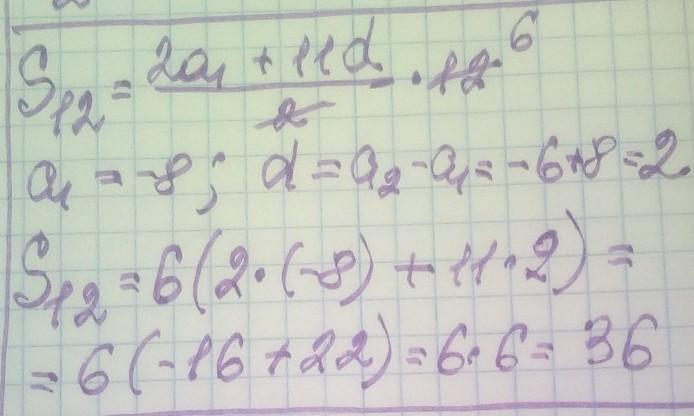 S₁₂ = (2a₁ + 11d)/2 · 12 6
a₁ = -8; d = a₂ - a₁ = -6+8 = 2.
S₁₂ = 6(2·(-8) + 11·2) =
= 6(-16+22) = 6·6 = 36